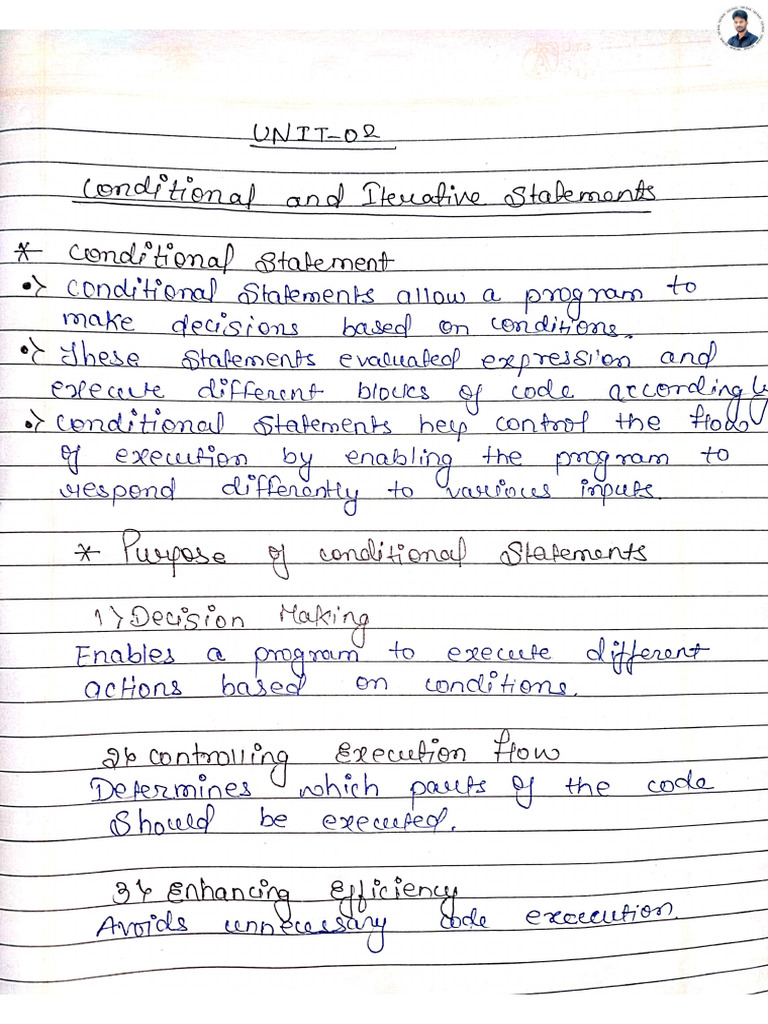 UNIT-02
Conditional and Iterative Statements
* Conditional Statement
•> Conditional Statements allow a program to
make decisions based on conditions.
•> These Statements evaluated expression and
execute different blocks of code accordingly
•> Conditional Statements help control the flow
of execution by enabling the program to
respond differently to various inputs.
* Purpose of conditional Statements
1> Decision Making
Enables a program to execute different
actions based on conditions.
2> Controlling Execution flow
Determines which parts of the code
Should be executed.
3> Enhancing Efficiency
Avoids unnecessary code excecution.